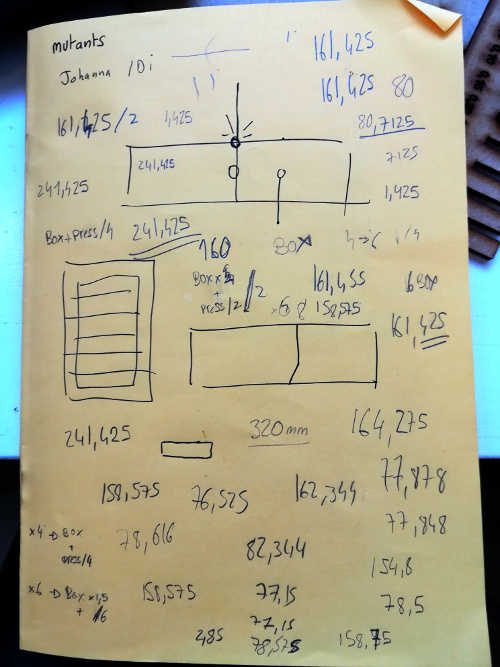 mutants
161,425
Johanna / Di
161,425 80
161,425/2 1,425
80,7125
241,425
7125
241,425
1,425
Box+press/4 241,425
160 BOX
BOX x
+
press/2 /2
161,455
6 BOX
x6 8 158,575
161,425
241,425
320mm
164,275
158,575 76,525 162,344 77,878
x4 → BOX
+
press/4
78,616
82,344
77,848
154,8
x6 → Box x1,5
+ 1/6
158,575
77,15
78,5
77,15
2,85
78,575
158,75